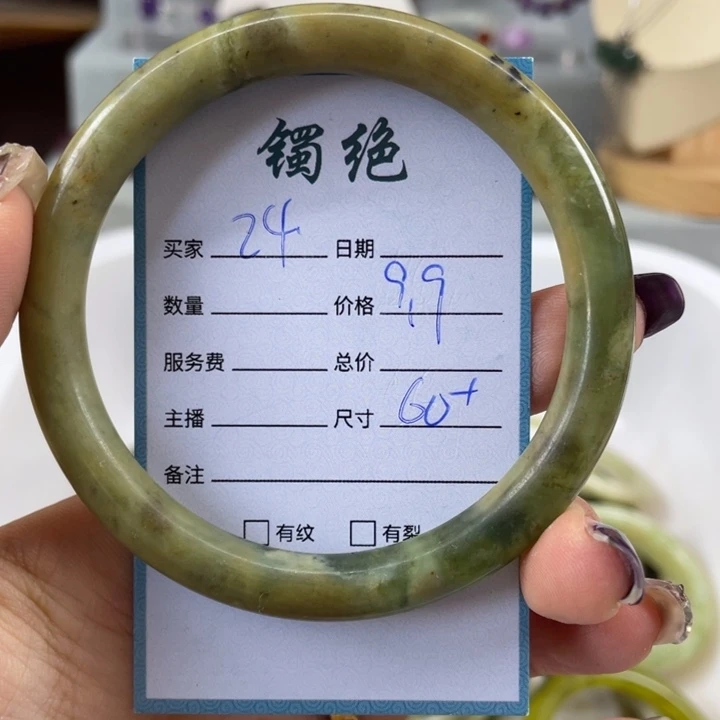 镯绝
买家 24 日期
数量 价格 9.9
服务费 总价
主播 尺寸 60+
备注
有纹 有裂